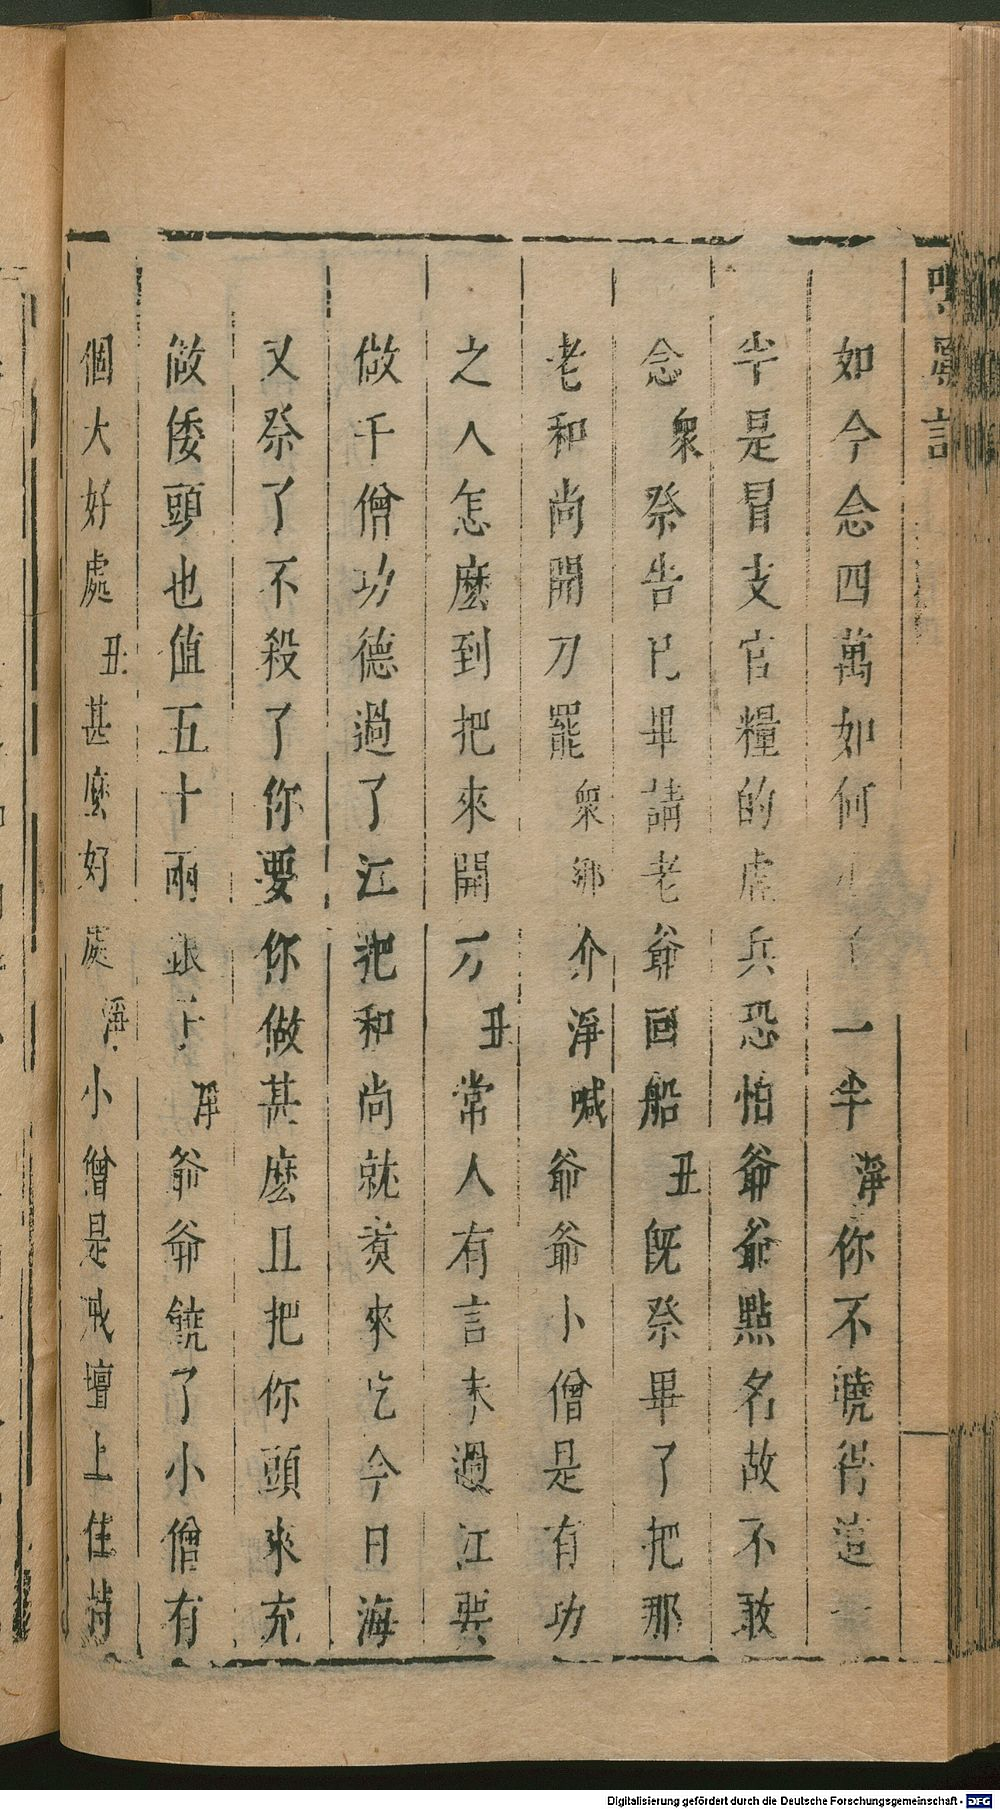 如今念四萬如何少了一半淨你不曉得這一
半是冒支官糧的虛兵恐怕爺爺點名故不敢
念衆祭告已畢請老爺回船丑旣祭畢了把那
老和尚開刀罷衆綁介淨喊爺爺小僧是有功
之人怎麽到把來開刀丑常人有言未過江要
做千僧功德過了江把和尚就煑來吃今日海
又祭了不殺了你要你做甚麽且把你頭來充
做倭頭也值五十兩銀子淨爺爺饒了小僧有
個大好處丑甚麽好處淨小僧是戒壇上住持
Digitalisierung gefördert durch die Deutsche Forschungsgemeinschaft - DFG